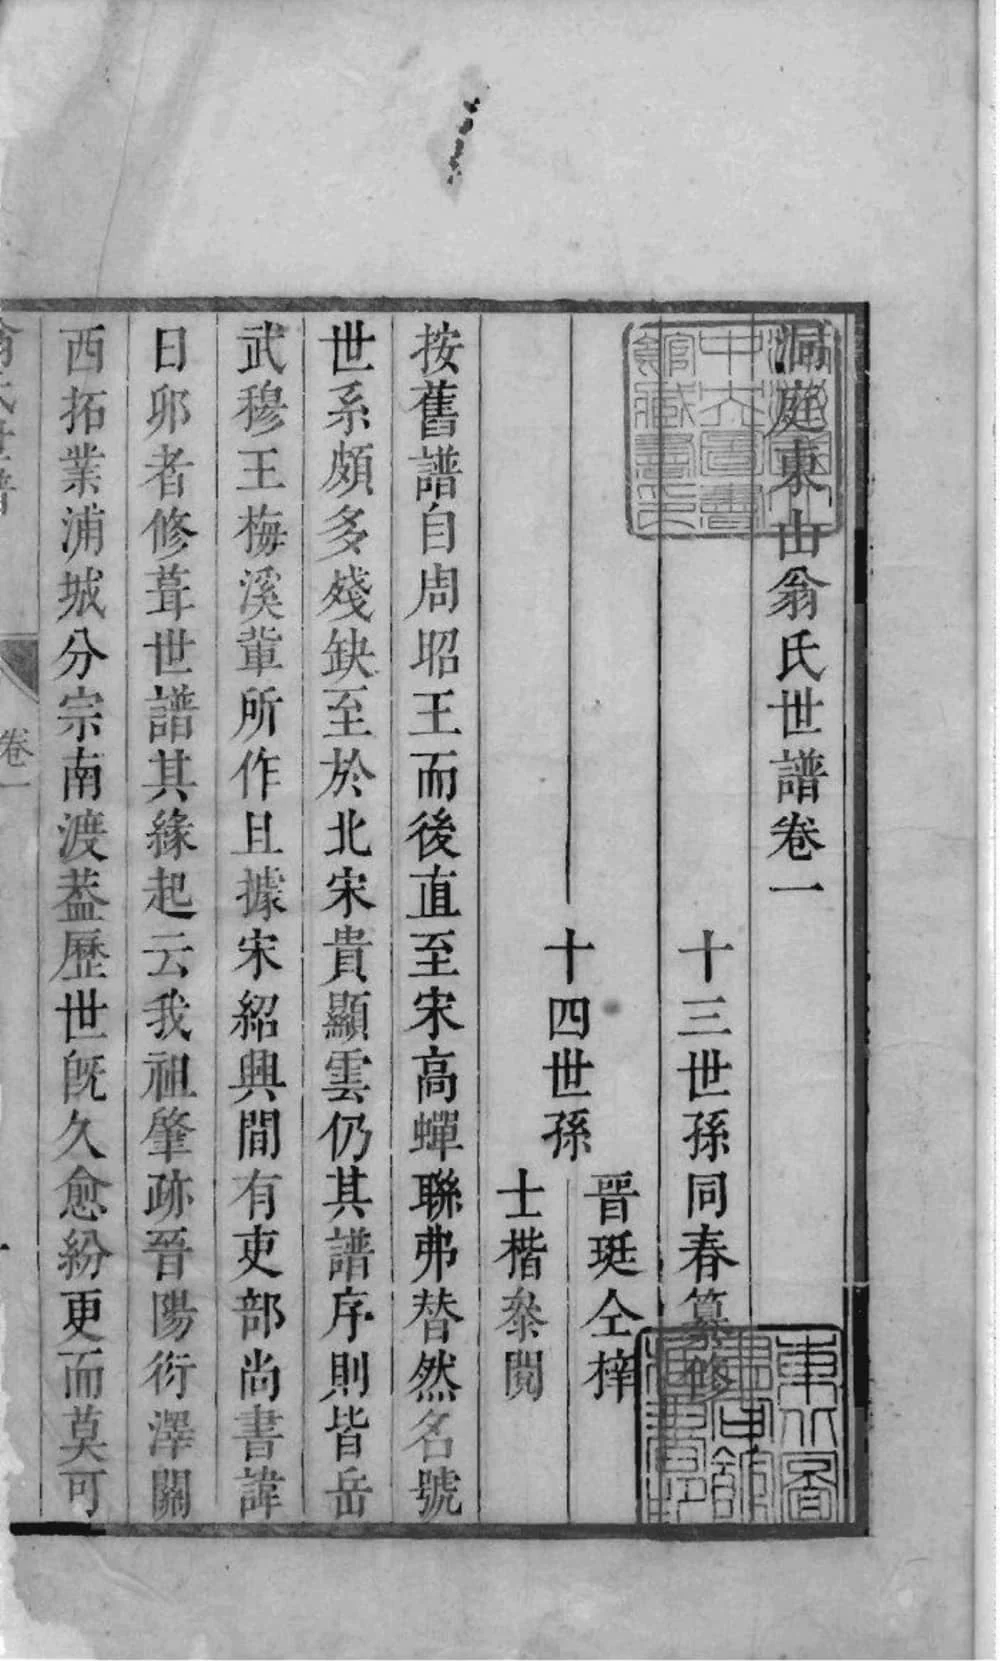 洞庭東山翁氏世譜卷一
十三世孫同春纂修
十四世孫
晉珽仝梓
士楷叅閱
按舊譜自周昭王而後直至宋高蟬聯弗替然名號
世系頗多殘缺至於北宋貴顯雲仍其譜序則皆岳
武穆王梅溪軰所作且據宋紹興間有吏部尚書諱
日卯者修葺世譜其緣起云我祖肇跡晉陽衍澤關
西拓業浦城分宗南渡葢歷世旣久愈紛更而莫可
卷一